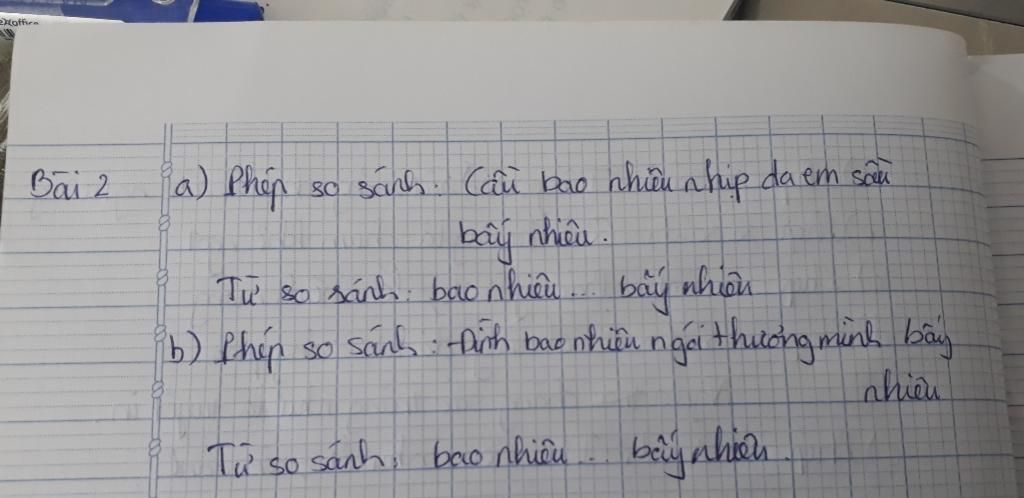 exoffice
Bài 2 a) Phép so sánh: Cầu bao nhiêu nhịp dạ em sầu
bấy nhiêu.
Từ so sánh: bao nhiêu... bấy nhiêu
b) Phép so sánh: Đình bao nhiêu ngói thương mình bấy
nhiêu
Từ so sánh: bao nhiêu... bấy nhiêu.